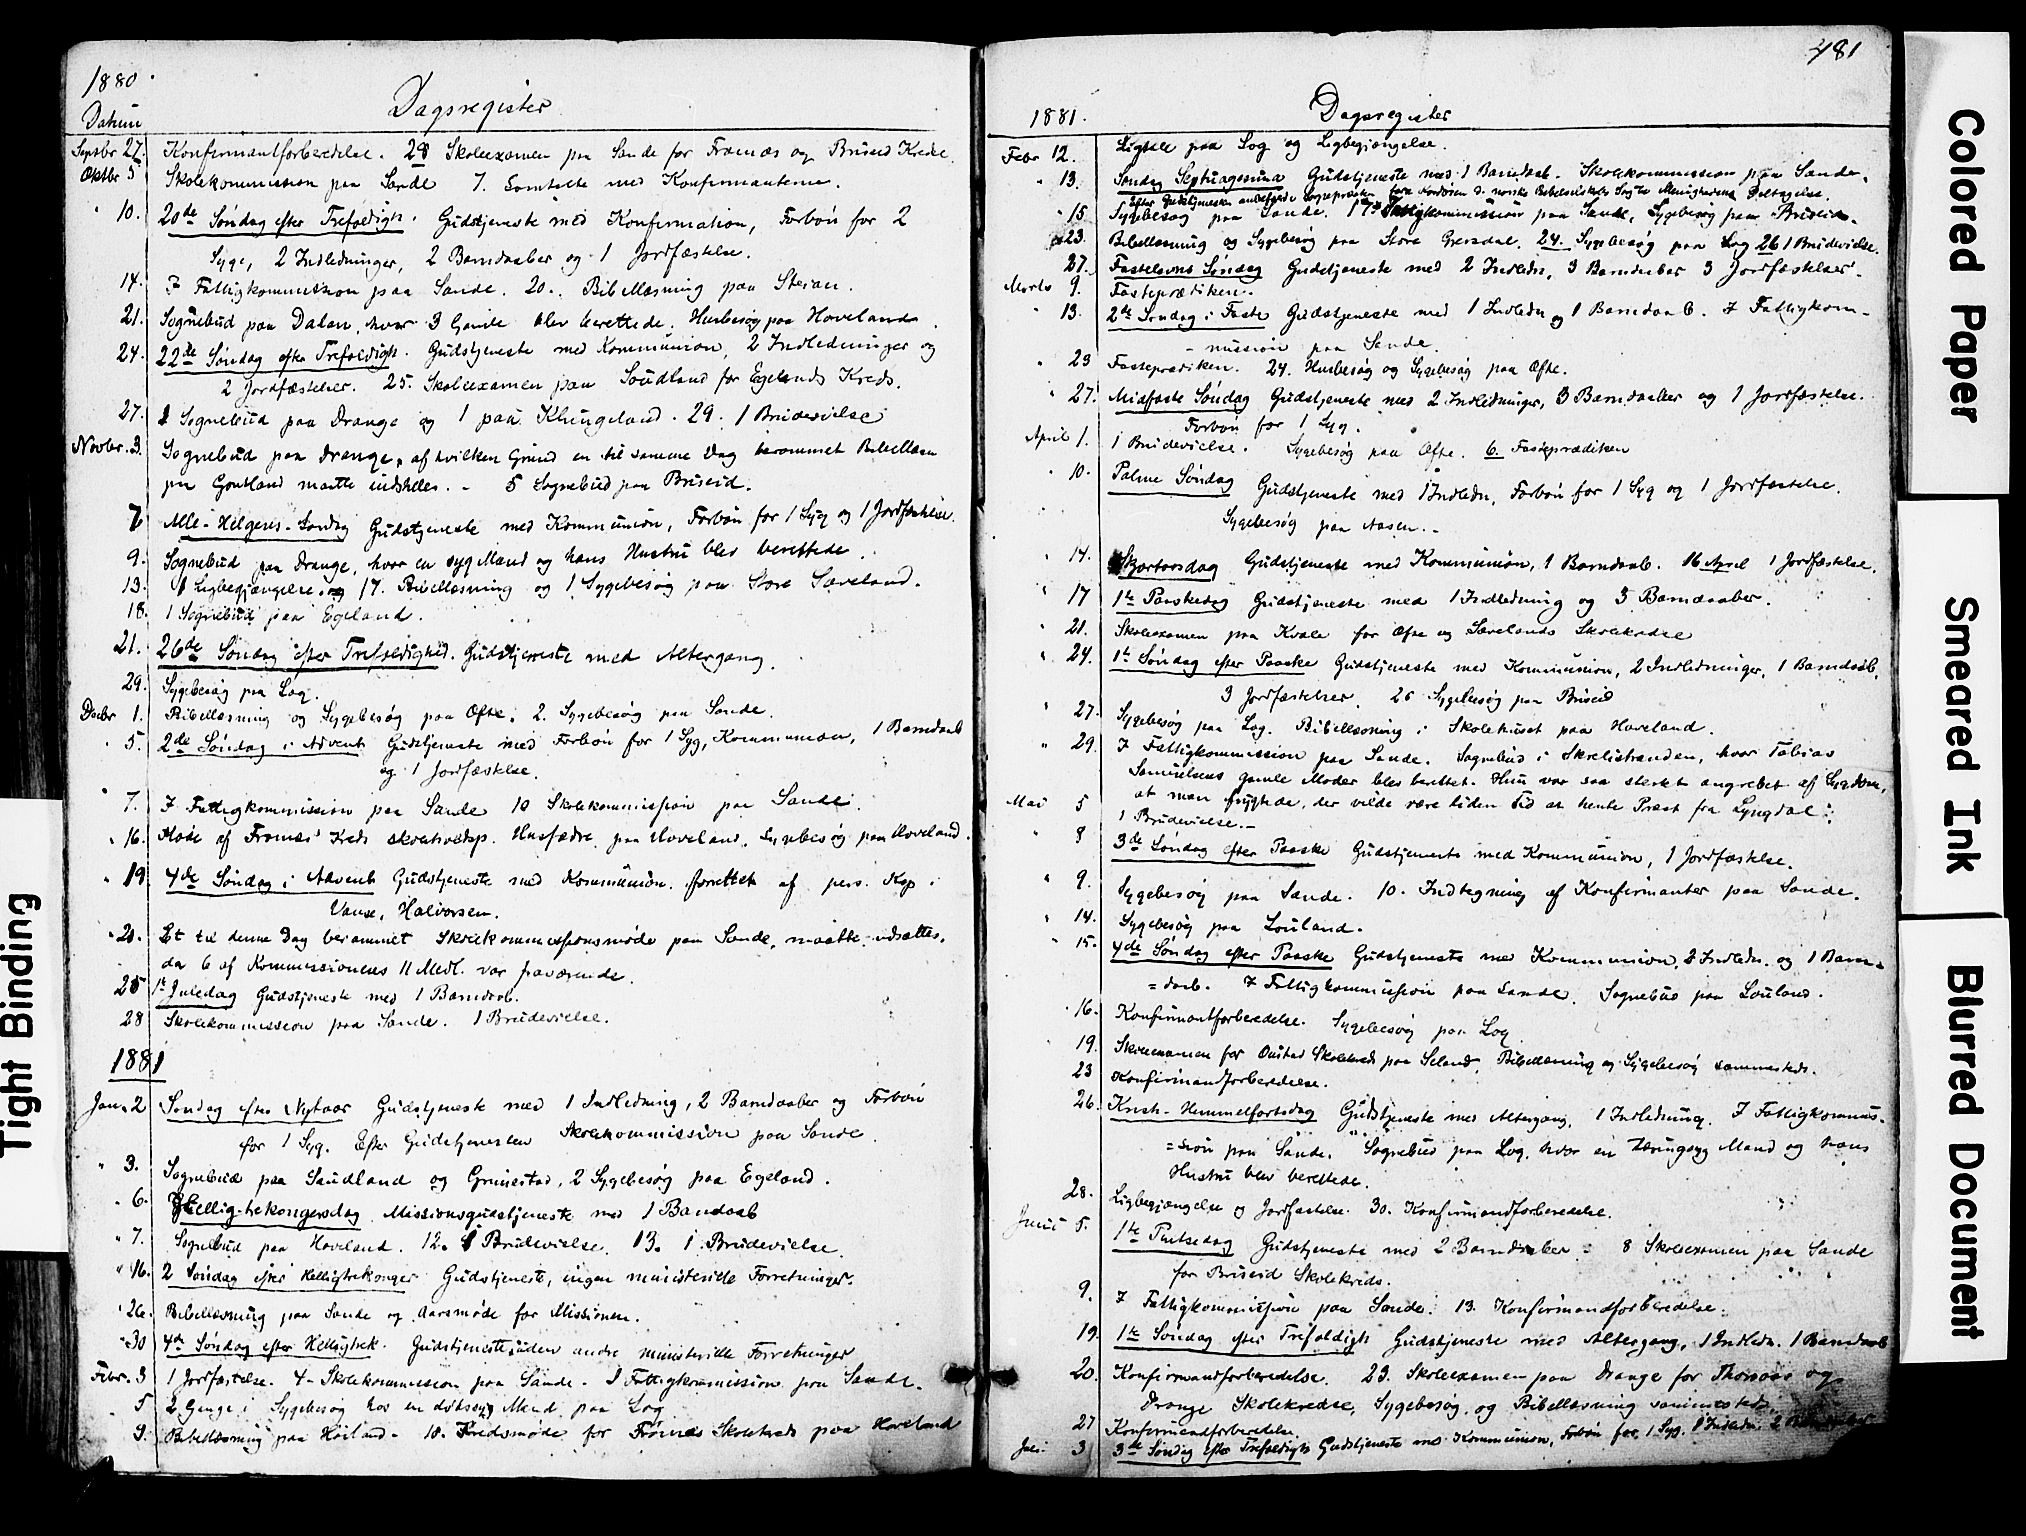 1880.
Datum
Dagsregister
Septbr 27. Konfirmantforberedelse. 28 Skoleexamen paa Sande for Framnæs og Briseid Kredse.
Oktbr 5 Skolekommission paa Sande 7. Samtale med Konfirmanterne.
10. 20de Søndag efter Trefoldigh. Gudstjeneste med Konfirmation, Forbøn for 2
Syge, 2 Indledninger, 2 Barndaaber og 1 Jordfæstelse.
14. Fattigkommission paa Sande. 20. Bibellæsning paa
21. Sognebud paa Dalan, hvor 3 Gamle blev berettede. Husbesøg paa Hoveland.
24. 22de Søndag efter Trefoldigh. Gudstjeneste med Kommunion, 2 Indledninger og
2 Jordfæstelser. 25. Skoleexamen paa Saudland for Egelands Kreds.
27. 1 Sognebud paa Drange og 1 paa Klungeland. 29. 1 Brudevielse
Novbr. 3. Sognebud paa Drange, af hvilken Grund en til samme Dag berammet Bibellæsn
paa maatte indstilles. - 5 Sognebud paa Briseid.
7 Alle-Helgens-Søndag Gudstjeneste med Kommunion, Forbøn for 1 Syg og 1 Jordfæstelse.
9. Sognebud paa Drange, hvor en syg Mand og hans Hustru blev berettede.
13. 1 Ligbegjængelse og 17. Bibellæsning og 1 Sygebesøg paa Store Sæveland.
18. 1 Sognebud paa Egeland.
21. 26de Søndag efter Trefoldighed. Gudstjeneste med Altergang.
29. Sygebesøg paa Log.
Decbr 1. Bibellæsning og Sygebesøg paa Øfte. 2. Sygebesøg paa Sande.
5. 2de Søndag i Advent Gudstjeneste med Forbøn for 1 Syg, Kommunion, 1 Barndaab
og 1 Jordfæstelse.
7. Fattigkommission paa Sande 10 Skolekommission paa Sande.
16. Møde af Framnæs Kreds Husfædre paa Hoveland. Sygebesøg paa Hoveland.
19 4de Søndag i Advent Gudstjeneste med Kommunion, forrettet af pers. Kap. i
Vanse, Halvorsen.
20. Et til denne Dag berammet Skolekommissionsmøde paa Sande, maatte udsættes,
da 6 af Kommissionens 11 Medl. var fraværende.
25 1te Juledag Gudstjeneste med 1 Barndaab.
28 Skolekommission paa Sande. 1 Brudevielse.
1881
Jan. 2 Søndag efter Nytaar Gudstjeneste med 1 Indledning, 2 Barndaaber og Forbøn
for 1 Syg. Efter Gudstjenesten Skolekommission paa Sande.
" 3. Sognebud paa Saudland og Grimestad, 2 Sygebesøg paa Egeland.
" 6. Hellig-trekongersdag Missionsgudstjeneste med 1 Barndaab
" 7. Sognebud paa Hoveland. 12. 1 Brudevielse. 13. 1 Brudevielse.
" 16. 2 Søndag efter Helligtrekonger Gudstjeneste, ingen ministerielle Forretninger.
" 26. Bibellæsning paa Sande og Aarsmøde for Missionen.
" 30 4de Søndag efter Helligtrek. Gudstjeneste uden andre ministerielle Forretninger
Febr. 3 1 Jordfæstelse. 4 - Skolekommission paa Sande - Fattigkommission paa Sande.
5 2 Gange i Sygebesøg hos en dødssyg Mand paa Log
9. Bibellæsning paa Høiland - 10. Kredsmøde for Framnæs Skolekreds paa Hoveland
481
1881.
Dagsregister
Febr 12. Ligtale paa Log og Ligbegjængelse.
" 13. Søndag Septuagesima Gudstjeneste med 1 Barndaab. Skolekommission paa Sande.
Efter Gudstjenesten anbefalede Sognepræsten norske Bibelselskabs Sag til Menighedens Deltagelse.
" 15 Sygebesøg paa Sande. 17de Fattigkommission paa Sande, Sygebesøg paa Briseid.
23. Bibellæsning og Sygebesøg paa Store Grersdal. 24. Sygebesøg paa Log 26 1 Brudevielse.
27. Fastelavns Søndag Gudstjeneste med 2 Indledn, 3 Barndaaber 3 Jordfæstelser.
Marts 9. Fasteprædiken.
" 13. 2de Søndag i Faste Gudstjeneste med 1 Indledn og 1 Barndaab. Fattigkom-
-mission paa Sande.
" 23 Fasteprædiken. 24. Husbesøg og Sygebesøg paa Øfte.
" 27. Midfaste Søndag Gudstjeneste med 2 Indledninger, 3 Barndaaber og 1 Jordfæstelse.
Forbøn for 1 Syg.
April 1. 1 Brudevielse. Sygebesøg paa Øfte. 6. Fasteprædiken
" 10. Palme Søndag Gudstjeneste med 1 Indledn, Forbøn for 1 Syg og 1 Jordfæstelse.
Sygebesøg paa Aasen. -
" 14. Skjærtorsdag Gudstjeneste med Kommunion, 1 Barndaab. 16 April 1 Jordfæstelse.
" 17 1te Paaskedag Gudstjeneste med 1 Indledning og 3 Barndaaber.
" 21. Skoleexamen paa Kvale for Øfte og Sævelands Skolekredse
" 24. 1te Søndag efter Paaske Gudstjeneste med Kommunion, 2 Indledninger, 1 Barndaab,
3 Jordfæstelser. 26 Sygebesøg paa Briseid
" 27. Sygebesøg paa Log. Bibellæsning i Skolehuset paa Hoveland.
" 29. Fattigkommission paa Sande. Sognebud i Skrelistranden, hvor Tobias
Samuelsens gamle Moder blev berettet. Hun var saa stærkt angrebet af Sygdom,
at man frygtede, der vilde være liden Tid at hente Præst fra Lyngdal.
Mai 5 1 Brudevielse. -
" 8 3de Søndag efter Paaske Gudstjeneste med Kommunion, 1 Jordfæstelse.
" 9. Sygebesøg paa Sande. 10. Indtegning af Konfirmanter paa Sande.
" 14. Sygebesøg paa Louland.
" 15. 4de Søndag efter Paaske Gudstjeneste med Kommunion, 2 Indledn. og 1 Barn-
=daab. Fattigkommission paa Sande. Sognebud paa Louland.
16. Konfirmantforberedelse. Sygebesøg paa Log
19. Skoleexamen for Skolekreds paa Seland, Bibellæsning og Sygebesøg sammesteds.
23 Konfirmandforberedelse.
26. Krist-Himmelfartsdag Gudstjeneste med Altergang, 1 Indledning. Fattigkommis-
=sion paa Sande. Sognebud paa Log, hvor en Mand og hans
Hustru blev berettede.
28. Ligbegjængelse og Jordfæstelse. 30. Konfirmandforberedelse.
Juni 5. 1te Pintsedag Gudstjeneste med 2 Barndaaber - 8 Skoleexamen paa Sande
for Briseid Skolekreds.
9. Fattigkommission paa Sande. 13. Konfirmandforberedelse.
19. 1te Søndag efter Trefoldigh Gudstjeneste med Altergang, 1 Indledn. 1 Barndaab
20. Konfirmandforberedelse. 23. Skoleexamen paa Drange for og
Drange Skolekredse, Sygebesøg og Bibellæsning sammesteds.
27 Konfirmandforberedelse.
Juli 3 3de Søndag efter Trefoldigh Gudstjeneste med Kommunion, Forbøn for 1 Syg. 1 Indledn. 2
Tight Binding
Colored Paper
Smeared Ink
Blurred Document